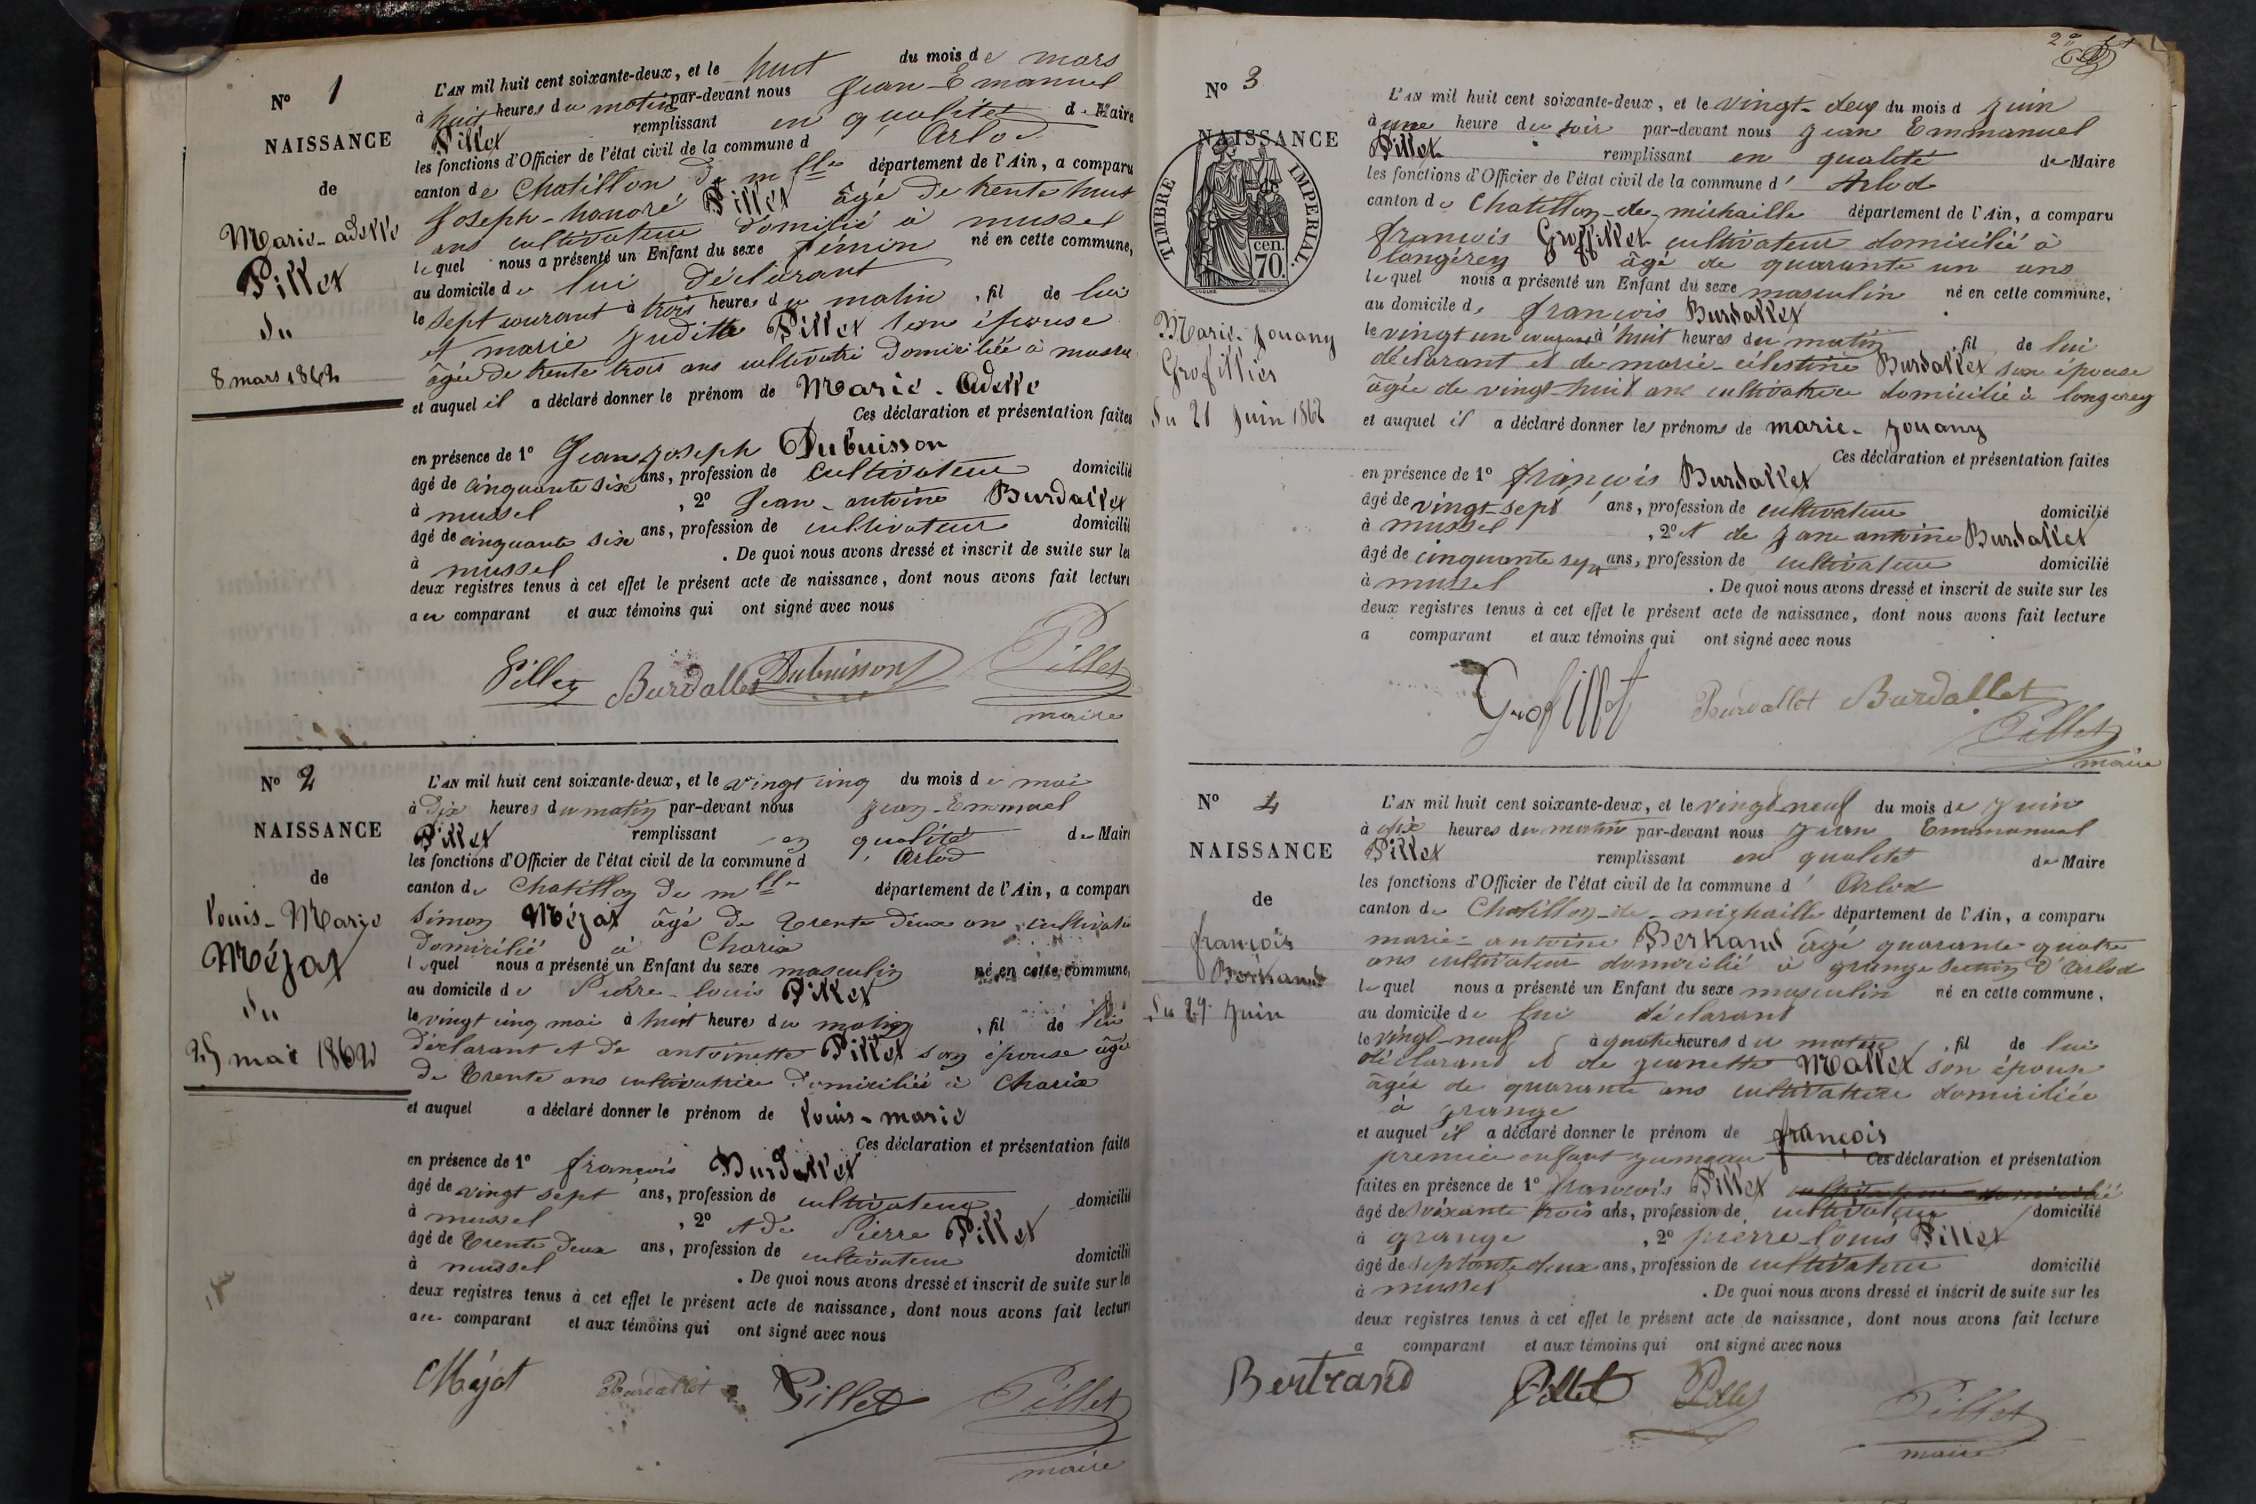 N° 1
NAISSANCE
de
Marie-adelle
Pillet
du
8 mars 1862
L'AN mil huit cent soixante-deux, et le huit du mois de mars
à huit heures du matin par-devant nous Jean-Emanuel
Pillet remplissant en qualité de Maire
les fonctions d'Officier de l'état civil de la commune d Arlod
canton de Chatillon de mlle département de l'Ain, a comparu
Joseph-honoré Pillet âgé de trente huit
ans cultivateur domicilié à mussel
lequel nous a présenté un Enfant du sexe féminin né en cette commune,
au domicile de lui déclarant
le sept courant à trois heures du matin, fil de lui
et marie Judith Pillet son épouse
âgée de trente trois ans cultivatri domiciliée à mussel
et auquel il a déclaré donner le prénom de Marie-Adelle
Ces déclaration et présentation faites
en présence de 1° Jean Joseph Dubuisson
âgé de cinquante six ans, profession de cultivateur domicilié
à mussel, 2° Jean-antoine Burdallet
âgé de cinquante six ans, profession de cultivateur domicilié
à mussel. De quoi nous avons dressé et inscrit de suite sur les
deux registres tenus à cet effet le présent acte de naissance, dont nous avons fait lecture
au comparant et aux témoins qui ont signé avec nous
Pillet Burdallet Dubuisson Pillet
maire
N° 2
NAISSANCE
de
Louis-Marie
Méjat
du
25 mai 1862
L'AN mil huit cent soixante-deux, et le vingt cinq du mois de mai
à dix heures du matin par-devant nous Jean-Emmael
Pillet remplissant en qualité de Maire
les fonctions d'Officier de l'état civil de la commune d Arlod
canton de Chatillon de mlle département de l'Ain, a comparu
Simon Méjat âgé de trente deux an cultivate
domicilié à Charix
lequel nous a présenté un Enfant du sexe masculin né en cette commune,
au domicile de Pierre-louis Pillet
le vingt cinq mai à huit heures du matin, fil de lui
déclarant et de antoinette Pillet son épouse âgé
de trente ans cultivatrice domiciliée à Charix
et auquel a déclaré donner le prénom de Louis-marie
Ces déclaration et présentation faites
en présence de 1° françois Burdallet
âgé de vingt sept ans, profession de cultivateur domicilié
à mussel, 2° et de Pierre Pillet
âgé de trente deux ans, profession de cultivateur domicilié
à mussel. De quoi nous avons dressé et inscrit de suite sur les
deux registres tenus à cet effet le présent acte de naissance, dont nous avons fait lecture
au comparant et aux témoins qui ont signé avec nous
Méjat Burdallet Pillet Pillet
maire
N° 3
NAISSANCE
TIMBRE IMPERIAL.
cen.
70.
Marie-Jouany
Grofillier
du 21 Juin 1862
L'AN mil huit cent soixante-deux, et le vingt-deux du mois d Juin
à une heure du soir par-devant nous Jean Emmanuel
Pillet remplissant en qualité de Maire
les fonctions d'Officier de l'état civil de la commune d' Arlod
canton de Chatillon-de-michaille département de l'Ain, a comparu
françois Groffillet cultivateur domicilié à
longérey âgé de quarante un ans
lequel nous a présenté un Enfant du sexe masculin né en cette commune,
au domicile de françois Burdallet
le vingt un courant à huit heures du matin, fil de lui
déclarant et de marie-célestine Burdallet son épouse
âgée de vingt-huit ans cultivatrice domicilié à longerey
et auquel il a déclaré donner les prénoms de marie-Jouany
Ces déclaration et présentation faites
en présence de 1° françois Burdallet
âgé de vingt-sept ans, profession de cultivateur domicilié
à mussel, 2° et de Jean antoine Burdallet
âgé de cinquante sept ans, profession de cultivateur domicilié
à mussel. De quoi nous avons dressé et inscrit de suite sur les
deux registres tenus à cet effet le présent acte de naissance, dont nous avons fait lecture
a comparant et aux témoins qui ont signé avec nous
Grofillet Burdallet Burdallet
Pillet
maire
N° 4
NAISSANCE
de
françois
Bertrand
du 29 Juin
L'AN mil huit cent soixante-deux, et le vingt-neuf du mois de Juin
à dix heures du matin par-devant nous Jean Emmanuel
Pillet remplissant en qualité de Maire
les fonctions d'Officier de l'état civil de la commune d' Arlod
canton de Chatillon-de-michaille département de l'Ain, a comparu
marie-antoine Bertrand âgé quarante-quatre
ans cultivateur domicilié à grange section d'Arlod
lequel nous a présenté un Enfant du sexe masculin né en cette commune,
au domicile de lui déclarant
le vingt-neuf à quatre heures du matin, fil de lui
déclarant et de jeanette Mallet son épouse
âgée de quarante ans cultivatrice domiciliée
à grange
et auquel il a déclaré donner le prénom de françois
premier enfant jumeau Ces déclaration et présentation
faites en présence de 1° françois Pillet cultivateur domicilié
âgé de soixante trois ans, profession de cultivateur domicilié
à grange, 2° pierre louis Pillet
âgé de septante deux ans, profession de cultivateur domicilié
à mussel. De quoi nous avons dressé et inscrit de suite sur les
deux registres tenus à cet effet le présent acte de naissance, dont nous avons fait lecture
a comparant et aux témoins qui ont signé avec nous
Bertrand Pillet Pillet Pillet
maire